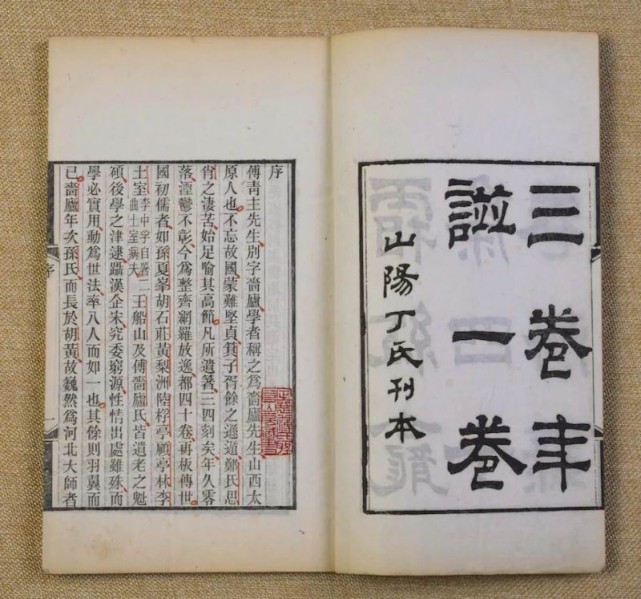 三卷年
譜一卷
山陽丁氏刊本
序
傅青主先生別字嗇廬學者稱之為嗇廬先生山西太
原人也不忘故國蒙難堅貞其子胥餘之遁鄭氏思
肖之淒苦始足喻其高節凡所遺箸三四刻矣年久零
落湮鬱不彰今為整齊網羅放逸都四十卷再板傳世
國初儒者如孫夏峯胡石莊黃梨洲陸桴亭顧亭林李
土室李中孚自署二曲土室病夫王船山及傅嗇廬氏皆遺老之魁
碩後學之津逮躡漢企宋究委窮源性情出處雖殊而
學必實用動為世法率八人而如一也其餘則羽翼而
已嗇廬年次孫氏而長於胡黃故巍然為河北大師者
序
一